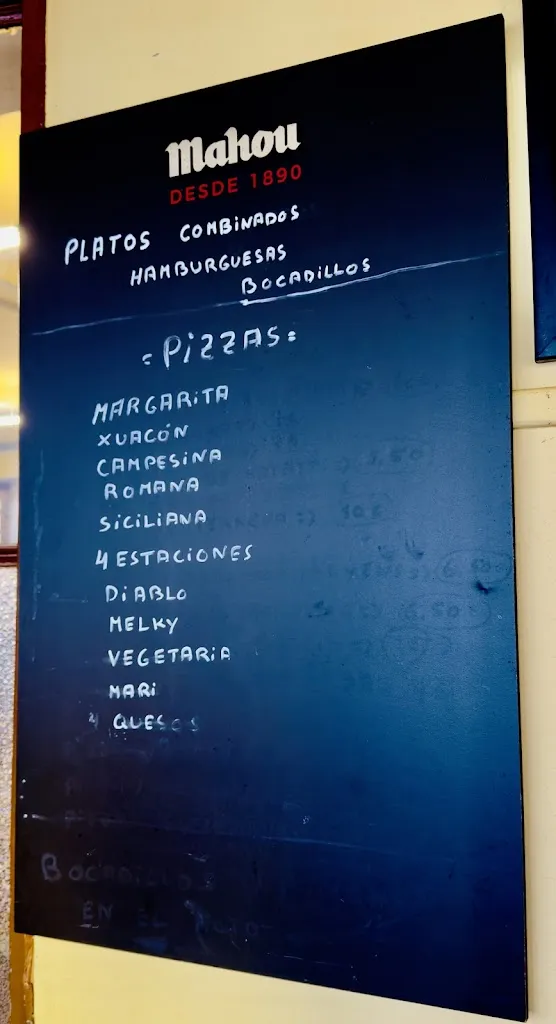 mahou
DESDE 1890
PLATOS COMBINADOS
HAMBURGUESAS
BOCADILLOS
= PIZZAS =
MARGARITA
XUACÓN
CAMPESINA
ROMANA
SICILIANA
4 ESTACIONES
DIABLO
MELKY
VEGETARIA
MARI
4 QUESOS
BOCADILLOS
EN EL